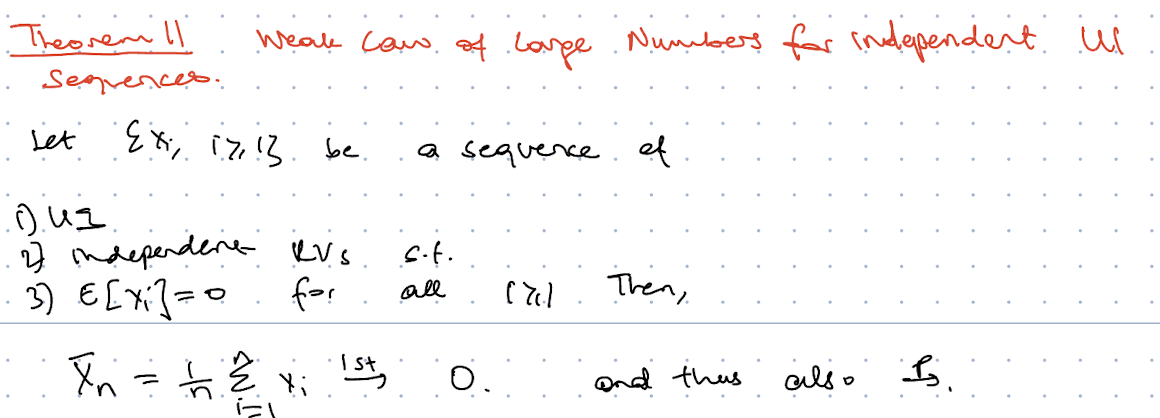 Theorem 11 Weak Law of Large Numbers for independent UI
Sequences.
Let {Xi, i≥1} be a sequence of
1) UI
2) independent RVs s.t.
3) E[Xi]=0 for all i≥1 Then,
X̄n = 1/n Σ_{i=1}^{n} Xi \xrightarrow{1st} 0. and thus also \xrightarrow{P}.